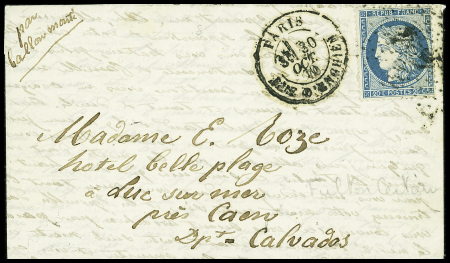 par
ballon monté
PARIS
30
OCT.
REPUB. FRANC.
20 C. POSTES 20 C.
Madame E. Roze
hotel belle plage
à Luc sur mer
près Caen
Dpt Calvados